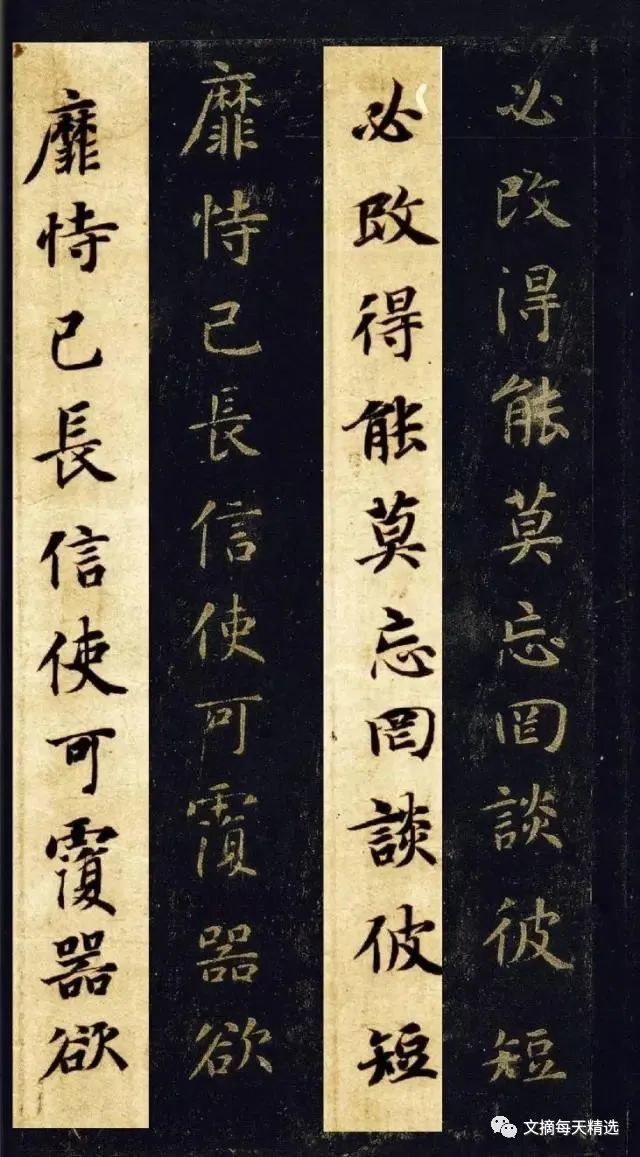 必改得能莫忘罔談彼短
必改得能莫忘罔談彼短
靡恃己長信使可覆器欲
靡恃己長信使可覆器欲
文摘每天精选